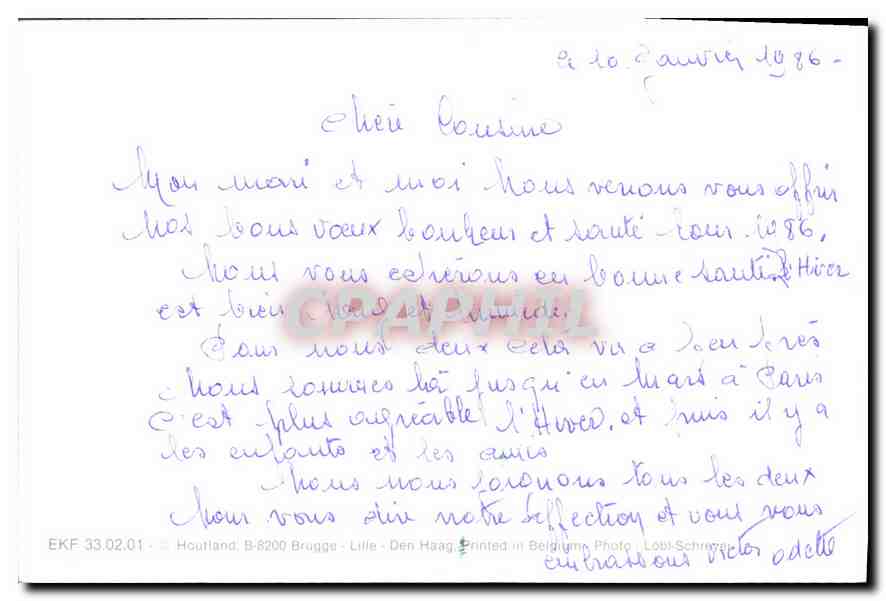 le 10 Janvier 1986 -
Chère Cousine
Mon mari et moi Nous venons vous offrir
Nos bons vœux bonheur et santé Pour 1986.
Nous vous espérons en bonne santé l'Hiver
est bien froid et humide.
Pour nous deux cela va à peu près
Nous sommes là jusqu'en Mars à Paris
C'est plus agréable l'Hiver. et puis il y a
les enfants et les amis
Nous nous joignons tous les deux
Pour vous dire notre affection et vous vous
embrassons Victor Odette
EKF 33.02.01 - © Houtland, B-8200 Brugge - Lille - Den Haag. Printed in Belgium - Photo : Löbl-Schreyer
CPAPHIL